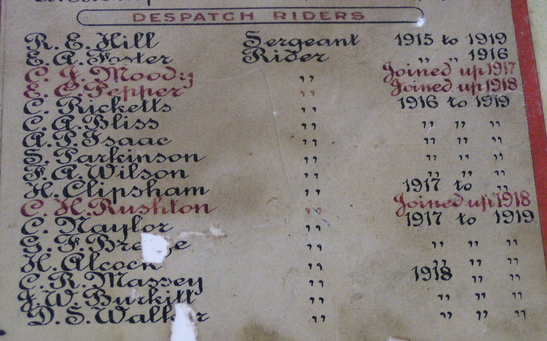 DESPATCH RIDERS
R. E. Hill Sergeant 1915 to 1919
E. A. Foster Rider " " 1916
C. J. Moody " Joined up 1917
E. C. Pepper " Joined up 1918
C. Ricketts " 1916 to 1919
C. A. Bliss " " " "
A. P. Isaac " " " "
S. Parkinson " " " "
F. A. Wilson " " " "
H. Clipsham " 1917 to "
C. H. Rushton " Joined up 1918
C. Naylor " 1917 to 1919
G. F. " " " "
H. Alcock " " " "
C. R. Massey " 1918 " "
J. W. Burkill " " " "
D. S. Walker " " " "